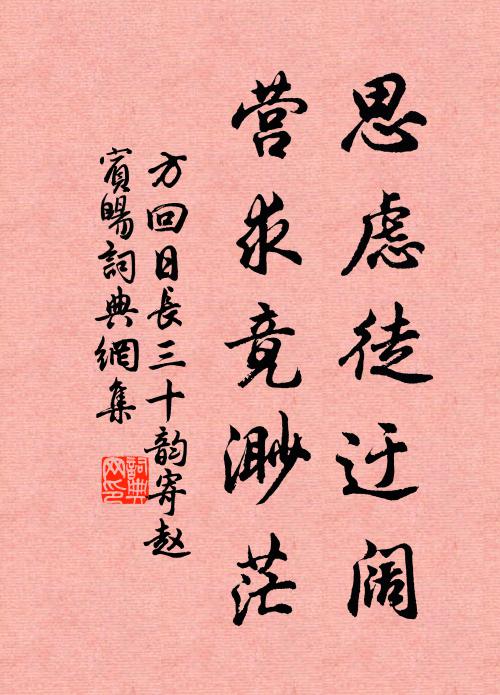 思虑徒迂阔
营求竟渺茫
方回日長三十韵寄赵
賓暘詞典網集
詞典网印